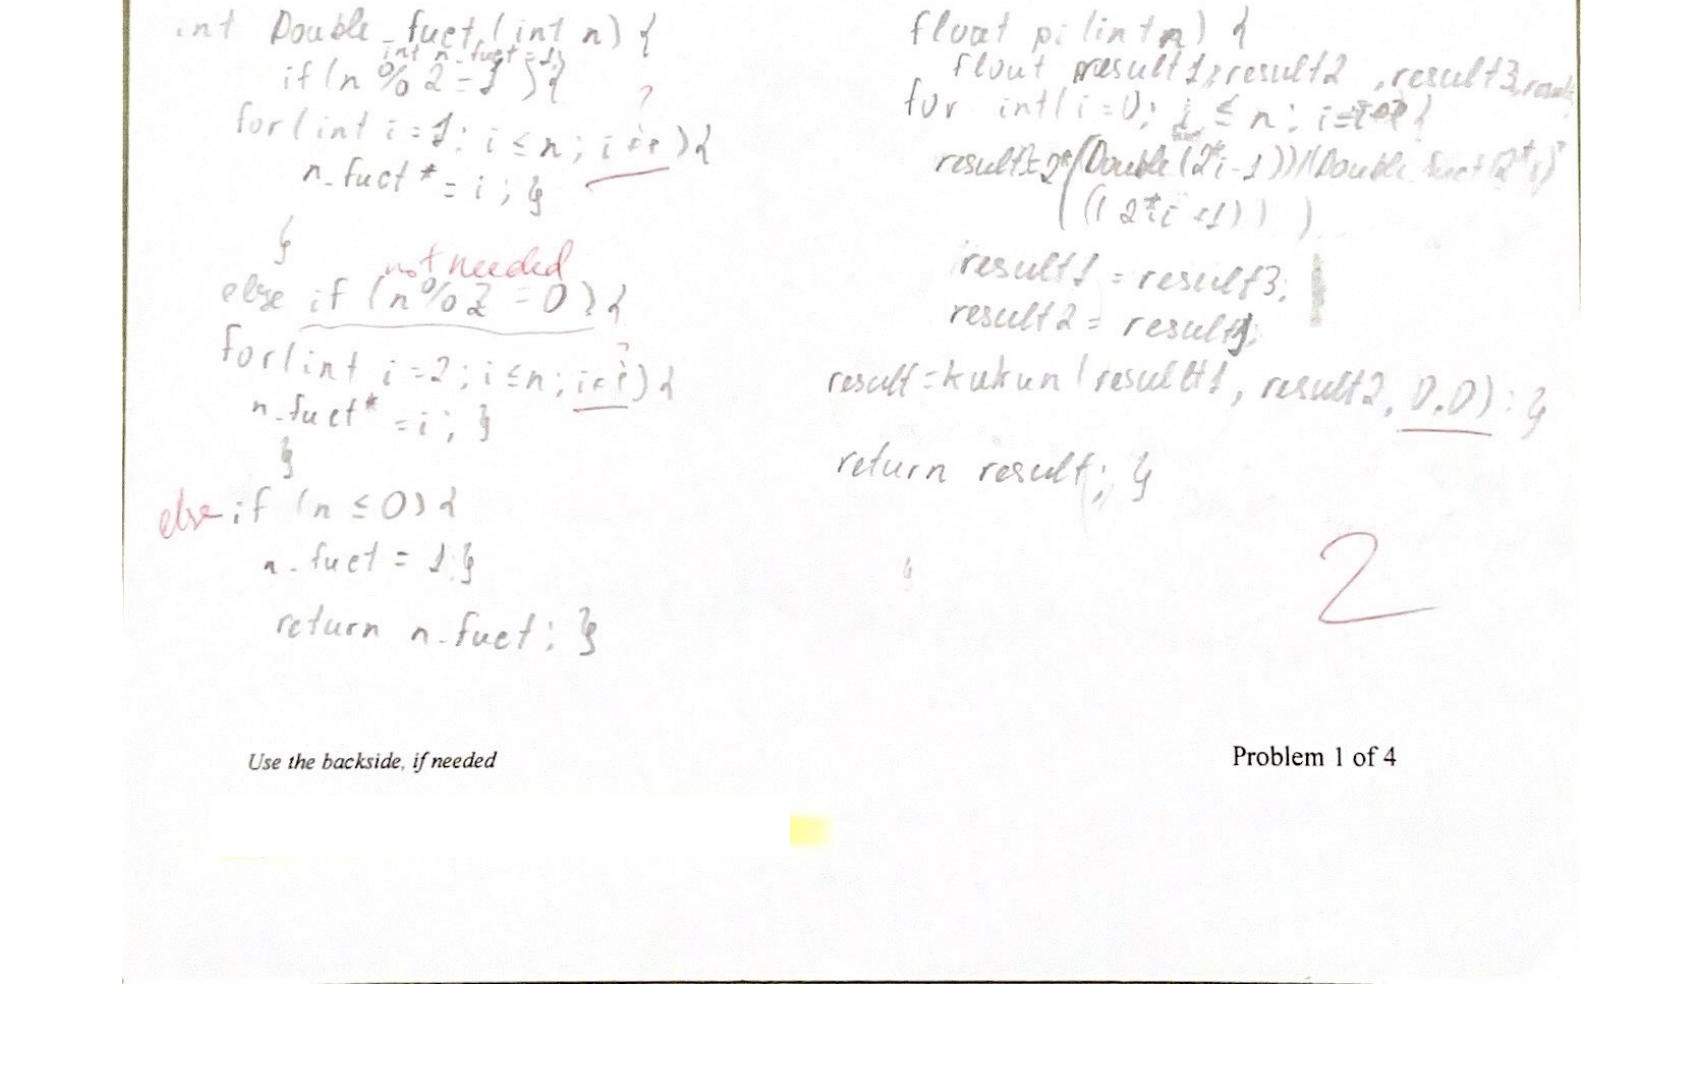 int Double_fuct (int n) {
int n_fuct = 1;
if (n % 2 = 1) {
?
for (int i = 1; i ≤ n; i++) {
n_fuct * = i ; }
}
not needed
else if (n % 2 = 0) {
?
for (int i = 2; i ≤ n; i++) {
n_fuct* = i ; }
}
else if (n ≤ 0) {
n_fuct = 1; }
return n_fuct ; }
float pi (int n) {
float result1, result2 , result3,
for int( i = 0; i ≤ n;
(Double (2*i-1))/(Double fuct(2*i)
((( 2*i +1) ) )
result1 = result3;
result2 =
result = kukun ( result1 , result2, 0.0) ; }
return result ; }
2
Use the backside, if needed
Problem 1 of 4